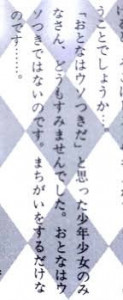 うことでしょうか…。
「おとなはウソつきだ」と思った少年少女のみ
なさん、どうもすみませんでした。おとなはウ
ソつきではないのです。まちがいをするだけな
のです……。